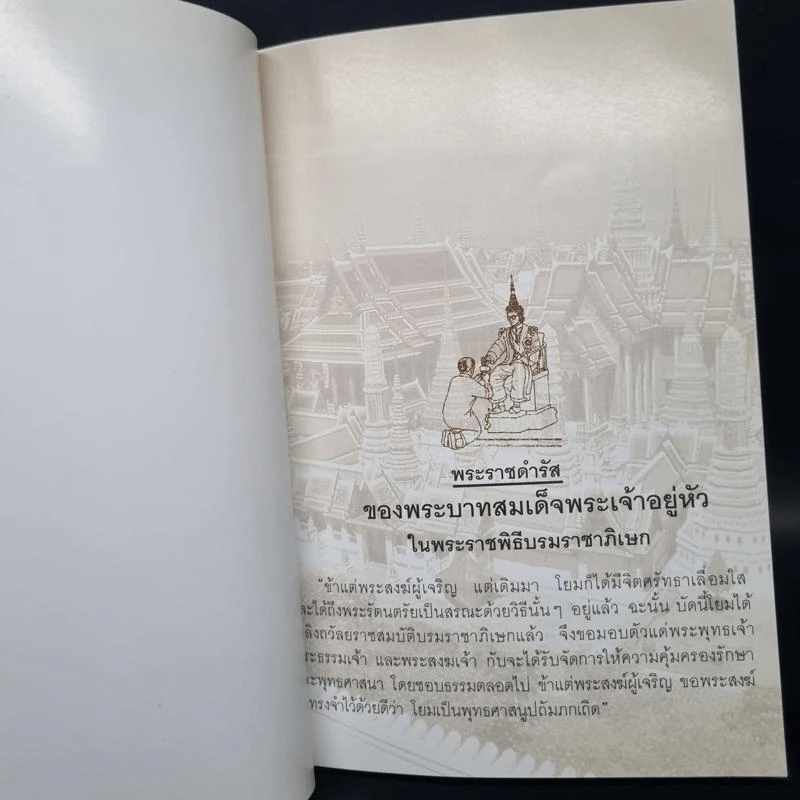 พระราชดำรัส
ของพระบาทสมเด็จพระเจ้าอยู่หัว
ในพระราชพิธีบรมราชาภิเษก
"ข้าแต่พระสงฆ์ผู้เจริญ แต่เดิมมา โยมก็ได้มีจิตศรัทธาเลื่อมใส
ละได้ถึงพระรัตนตรัยเป็นสรณะด้วยวิธีนั้นๆ อยู่แล้ว ฉะนั้น บัดนี้โยมได้
ลิงถวัลยราชสมบัติบรมราชาภิเษกแล้ว จึงขอมอบตัวแด่พระพุทธเจ้า
ระธรรมเจ้า และพระสงฆเจ้า กับจะได้รับจัดการให้ความคุ้มครองรักษา
ะพุทธศาสนา โดยชอบธรรมตลอดไป ข้าแต่พระสงฆ์ผู้เจริญ ขอพระสงฆ์
ทรงจำไว้ด้วยดีว่า โยมเป็นพุทธศาสนูปถัมภกเถิด"